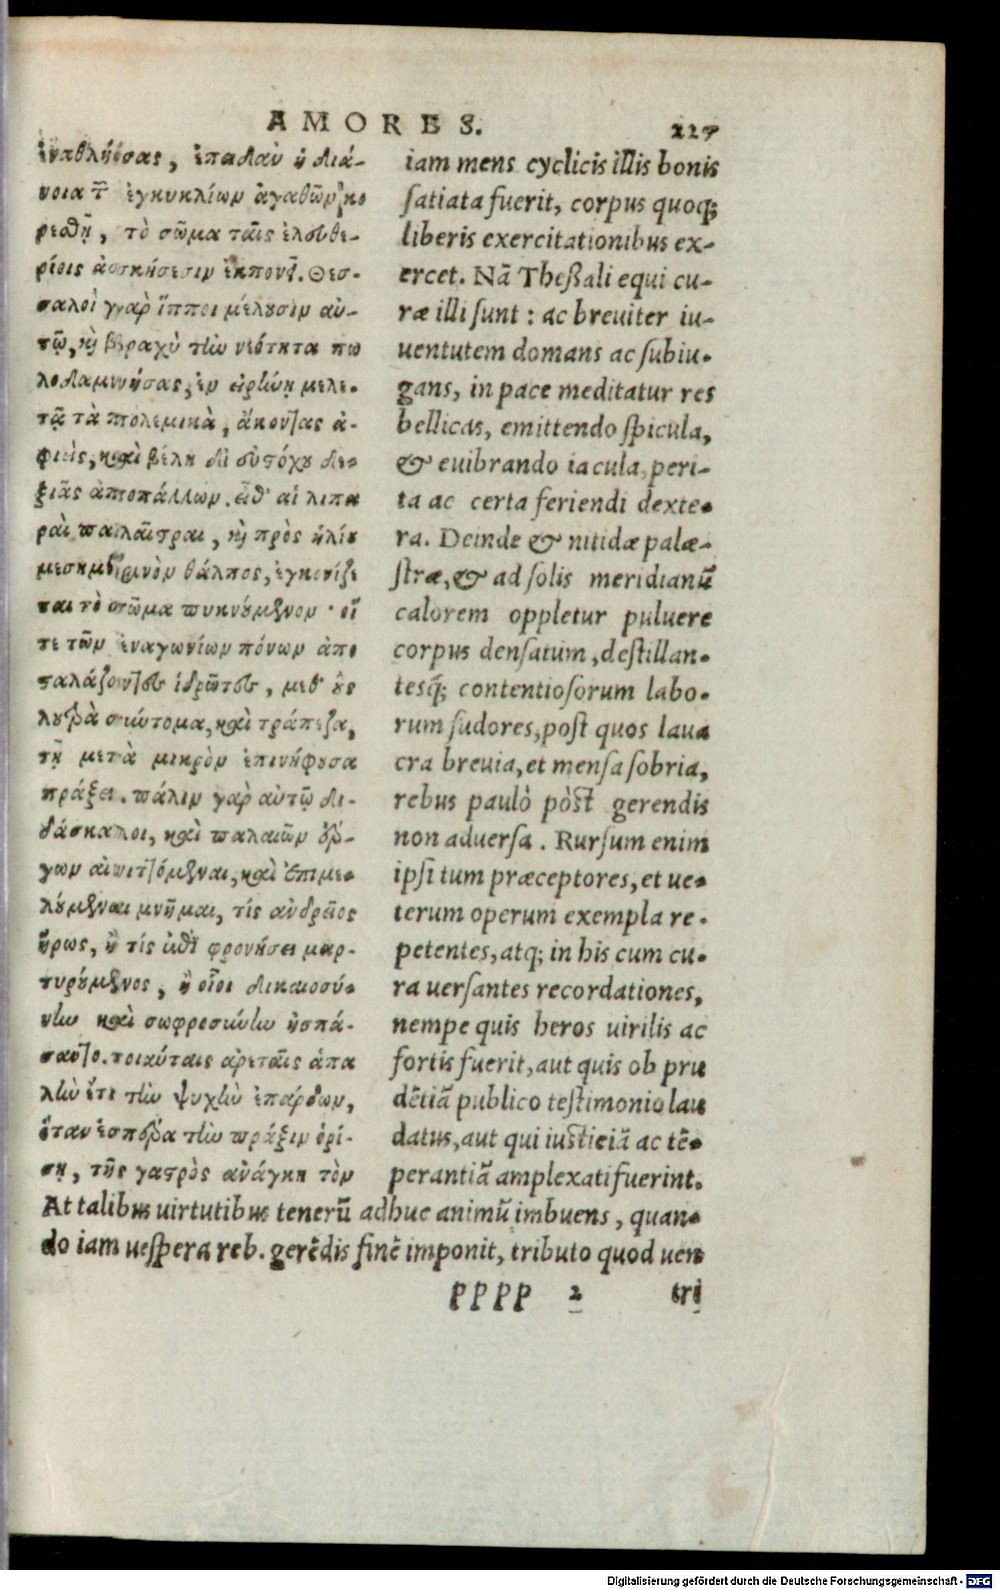 AMORES.
ἐναθλήσας, ἐπειδὰν ἡ διά-
νοια τ̄ ἐγκυκλίων ἀγαθῶν κο
ρεσθῇ, τὸ σῶμα ταῖς ἐλευθε-
ρίοις ἀσκήσεσιν ἐκπονεῖ. Θεσ-
σαλοὶ γὰρ ἵπποι μέλουσιν αὐ-
τῷ, καὶ βραχὺ τὴν νεότητα πω
λοδαμνήσας, ἐν εἰρήνῃ μελε-
τᾷ τὰ πολεμικὰ, ἄκοντας ἀ-
φιεὶς, καὶ βέλη δι' εὐστόχου δε-
ξιᾶς ἀποπάλλων. εἶθ' αἱ λιπα
ραὶ παλαῖστραι, καὶ πρὸς ἡλίου
μεσημβρινὸν θάλπος, ἐγκονίζε
ται τὸ σῶμα πυκνούμενον· οἵ
τε τῶν ἐναγωνίων πόνων ἀπο
σταλάζοντες ἱδρῶτες, μεθ' οὓς
λουτρὰ σύντομα, καὶ τράπεζα,
τῇ μετὰ μικρὸν ἐπινήφουσα
πράξει. πάλιν γὰρ αὐτῷ δι-
δάσκαλοι, καὶ παλαιῶν ἔρ-
γων αἰνιττόμεναι, καὶ ἐπιμε-
λούμεναι μνῆμαι, τίς ἀνδρεῖος
ἥρως, ἢ τίς ἐπὶ φρονήσει μαρ-
τυρούμενος, ἢ οἷοι δικαιοσύ-
νην καὶ σωφροσύνην ἠσπά-
σαντο. τοιαύταις ἀρεταῖς ἁπα
λὴν ἔτι τὴν ψυχὴν ἐπάρδων,
ὅταν ἑσπέρα τὴν πρᾶξιν ὁρί-
σῃ, τῆς γαστρὸς ἀνάγκη τὸν
iam mens cyclicis illis bonis
satiata fuerit, corpus quoq;
liberis exercitationibus ex-
ercet. Nā Theßali equi cu-
ræ illi sunt : ac breuiter iu-
uentutem domans ac subiu-
gans, in pace meditatur res
bellicas, emittendo spicula,
& euibrando iacula, peri-
ta ac certa feriendi dexte-
ra. Deinde & nitidæ palæ-
stræ, & ad solis meridianū
calorem oppletur puluere
corpus densatum, destillan-
tesq; contentiosorum labo-
rum sudores, post quos laua
cra breuia, et mensa sobria,
rebus paulò pòst gerendis
non aduersa. Rursum enim
ipsi tum præceptores, et ue-
terum operum exempla re-
petentes, atq; in his cum cu-
ra uersantes recordationes,
nempe quis heros uirilis ac
fortis fuerit, aut quis ob pru
dētiā publico testimonio lau
datus, aut qui iusticiā ac tē-
perantiā amplexati fuerint.
At talibus uirtutibus tenerū adhuc animū imbuens, quan-
do iam uespera reb. gerēdis finē imponit, tributo quod uen
PPPP 2 tri
Digitalisierung gefördert durch die Deutsche Forschungsgemeinschaft - DFG